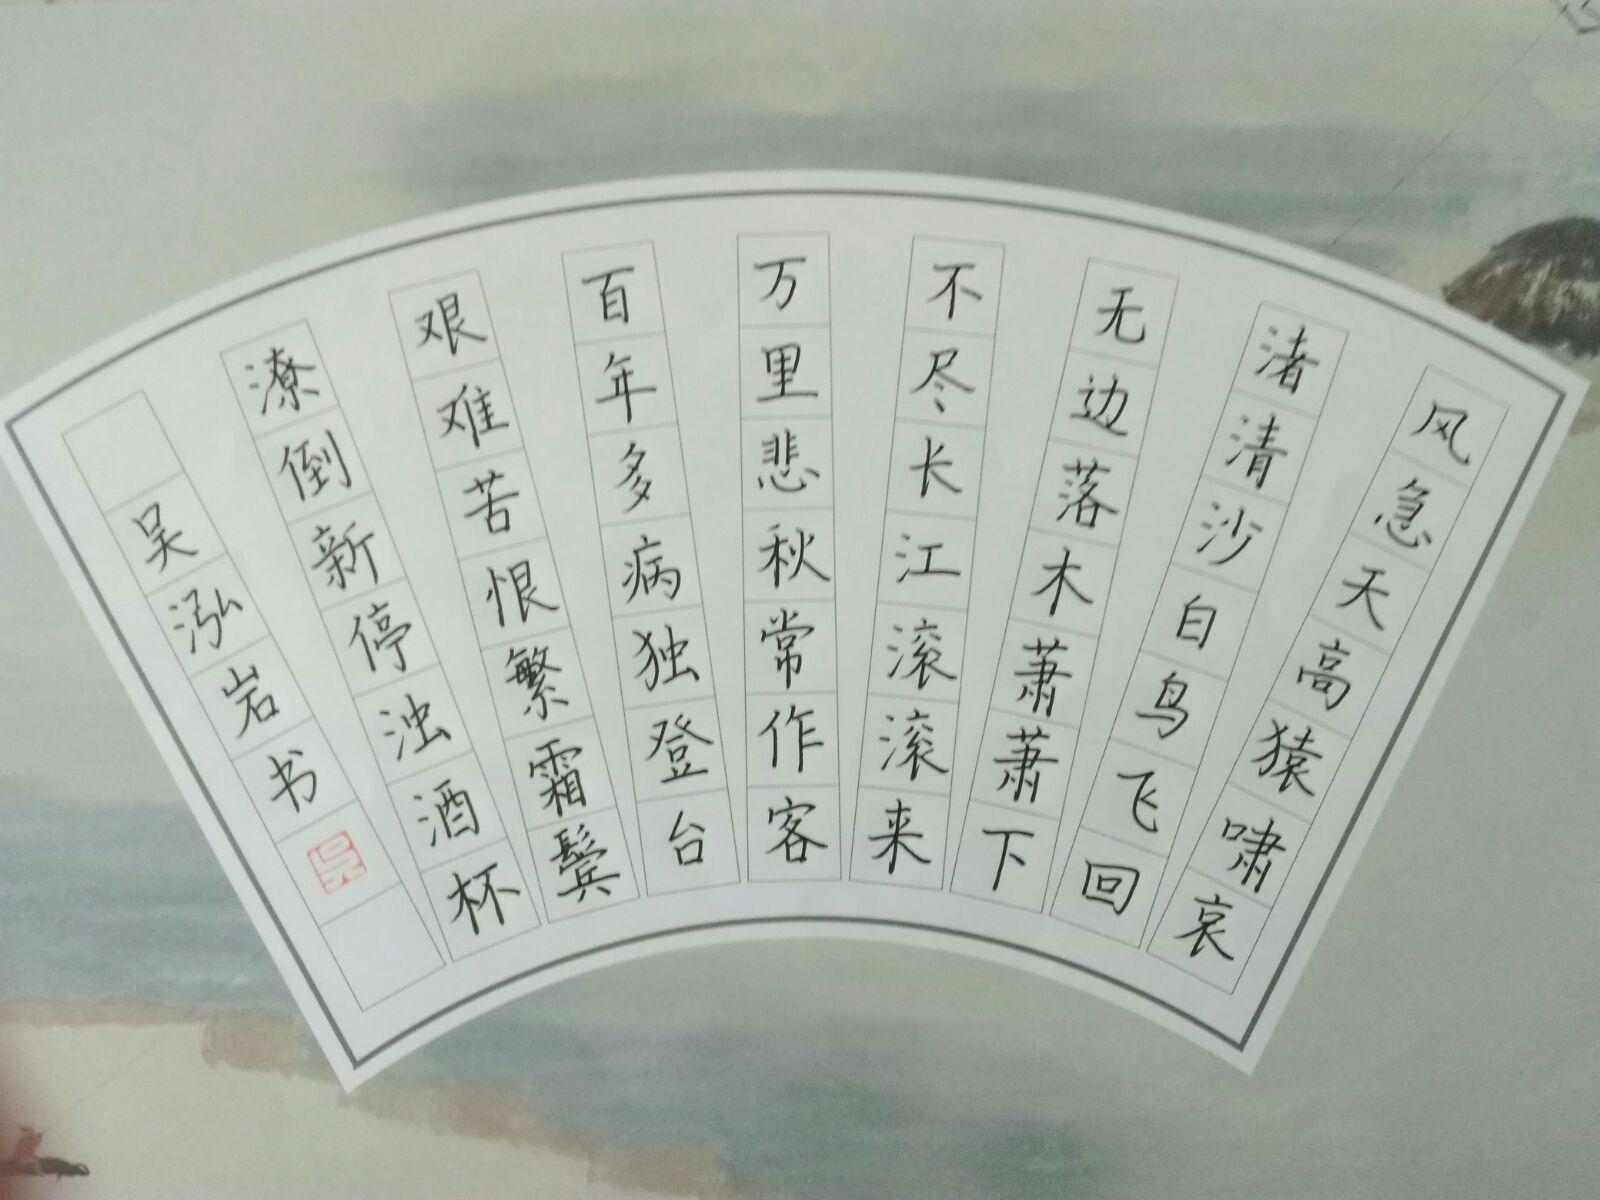 风急天高猿啸哀
渚清沙白鸟飞回
无边落木萧萧下
不尽长江滚滚来
万里悲秋常作客
百年多病独登台
艰难苦恨繁霜鬓
潦倒新停浊酒杯
吴泓岩书
吴